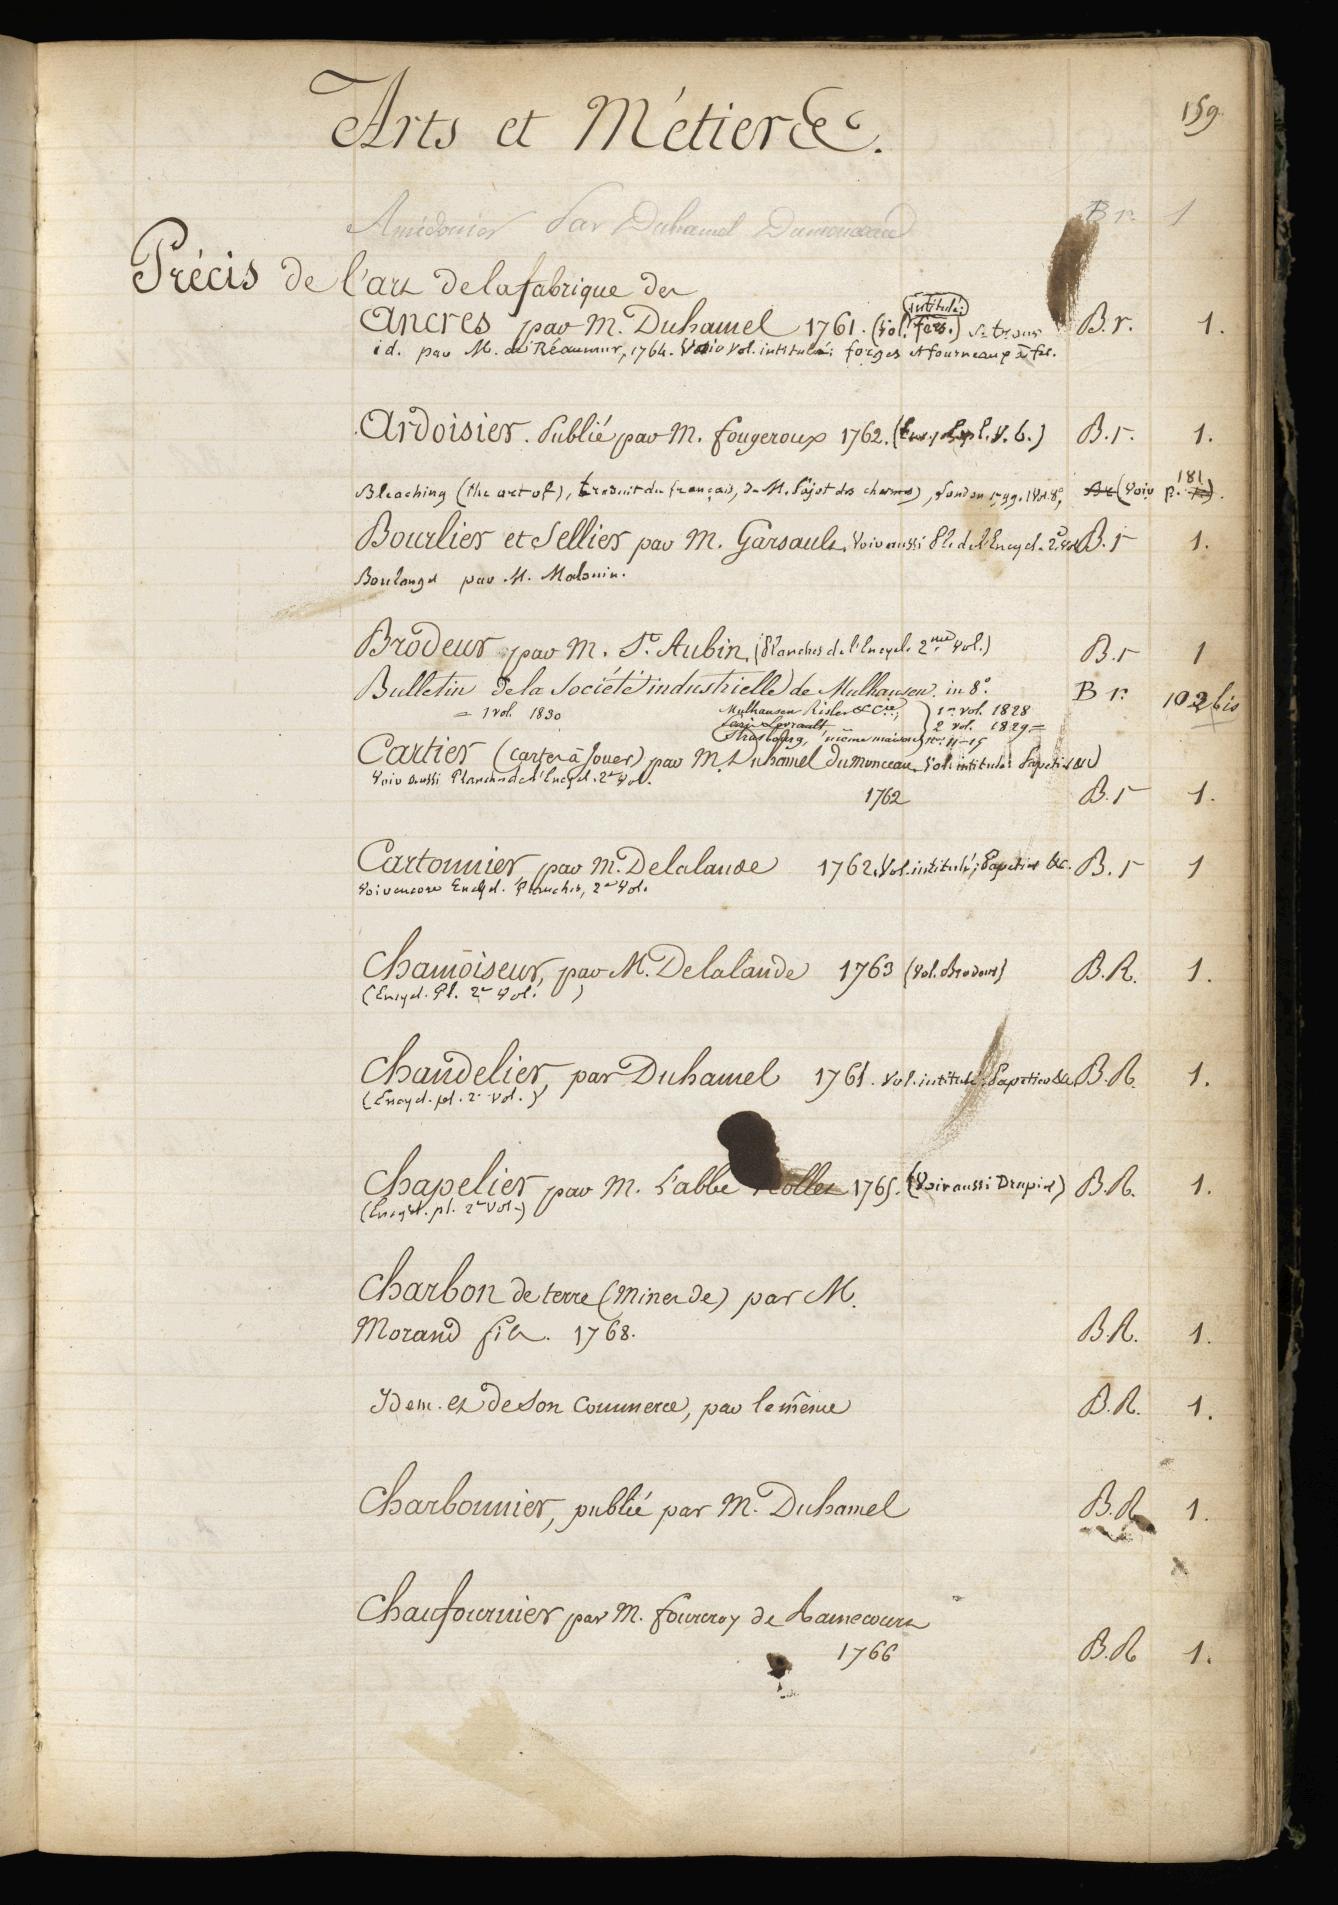 159.
Arts et Métiers &c.
Amidonier Par Duhamel Dumonceau B r. 1
Précis de l'art de la fabrique des
intitulé:
Ancres par M. Duhamel 1761. (Vol. fers.) B. r. 1.
id. par M. de Réaumur, 1764. Voir Vol. intitulé: forges et fourneaux à fer.
Ardoisier. Publié par M. fougeroux 1762. B. r. 1.
181
Bleaching (the art of), traduit du français, de M. Pajot des charmes, London 1799. 1 Vol. 8°, (Voir p.
Bourlier et Sellier par M. Garsault. Voir aussi Pl. de l'Encycl. 2e Vol B. r 1.
Boulanger par M. Malouin.
Brodeur par M. St. Aubin. (Planches de l'Encycl. 2me Vol.) B. r 1
Bulletin de la Société industrielle de Mulhausen. in 8°. B r. 102 bis
= 1 vol. 1830 Mulhausen Risler & Cie; 1er vol. 1828
Paris Levrault 2 vol. 1829 =
Strasbourg, même maison no. 11-15
Cartier (cartes à Jouer) par M. Duhamel dumonceau. Vol. intitulé: Papetier &c
Voir aussi Planches de l'Encycl. 2e Vol.
1762 B. r 1.
Cartonnier, par M. Delalande 1762. Vol. intitulé; Papetier &c. B. r 1
Voir encore Encycl. Planches, 2e Vol.
Chamoiseur, par M. Delalande 1763 (Vol. Brodeur) B. R. 1.
(Encycl. Pl. 2e Vol. )
Chandelier, par Duhamel 1761. Vol. intitulé: Papetier &c B. R. 1.
(Encycl. pl. 2e Vol. )
Chapelier par M. L'abbé Nollet 1765. (Voir aussi Drapier) B. R. 1.
(Encycl. pl. 2e Vol.)
Charbon de terre (Mines de) par M.
Morand fils. 1768. B. R. 1.
Idem. et de Son Commerce, par le même B. R. 1.
Charbonnier, publié par M. Duhamel B. R 1.
Chaufournier par M. fourcroy de Ramecourt
1766 B. R 1.